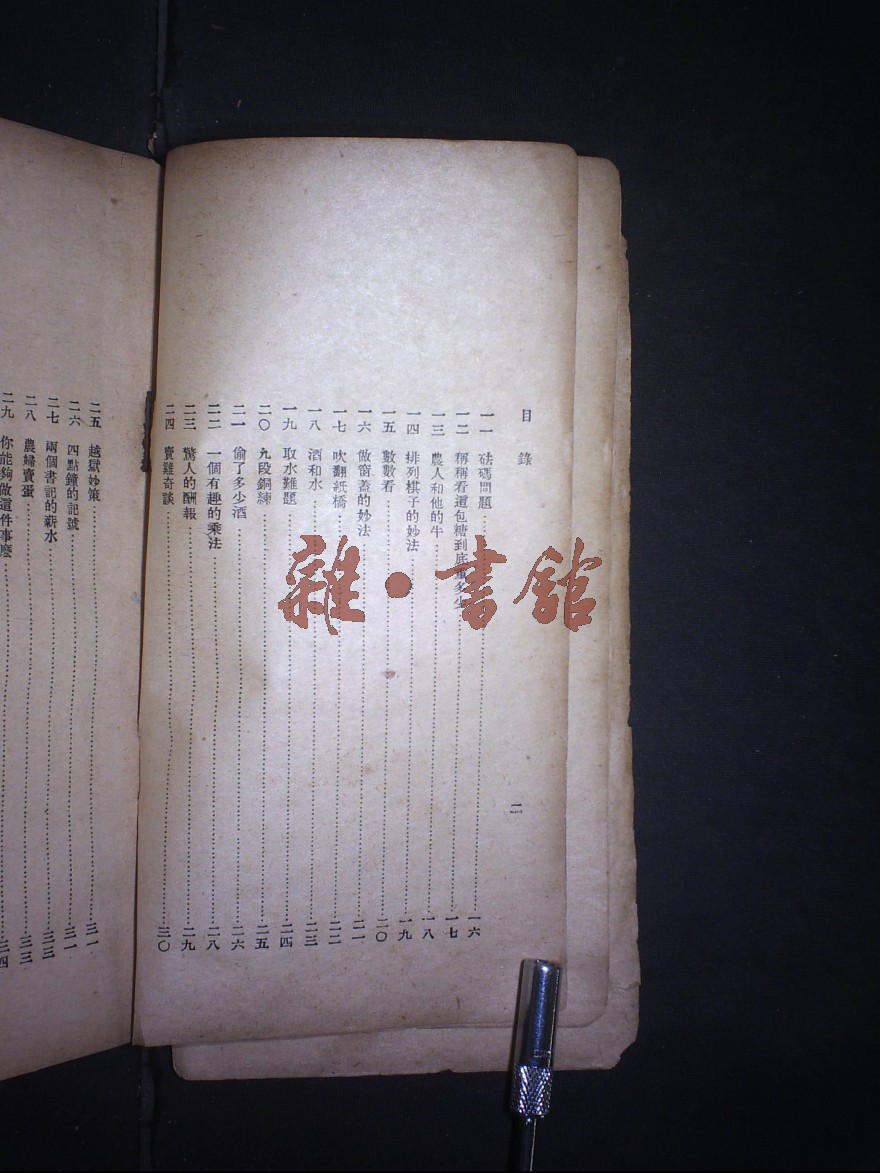 目錄
一一 砝碼問題 一六
一二 稱稱看這包糖到底重多少 一七
一三 農人和他的牛 一八
一四 排列棋子的妙法 一九
一五 數數看 二〇
一六 做窗蓋的妙法 二一
一七 吹翻紙橋 二二
一八 酒和水 二三
一九 取水難題 二四
二〇 九段銅練 二五
二一 偷了多少酒 二六
二二 一個有趣的乘法 二八
二三 驚人的酬報 二九
二四 賣雞奇談 三〇
二
二五 越獄妙策 三一
二六 四點鐘的記號 三一
二七 兩個書記的薪水 三三
二八 農婦賣蛋 三三
二九 你能夠做這件事麼 三四
雜·書館